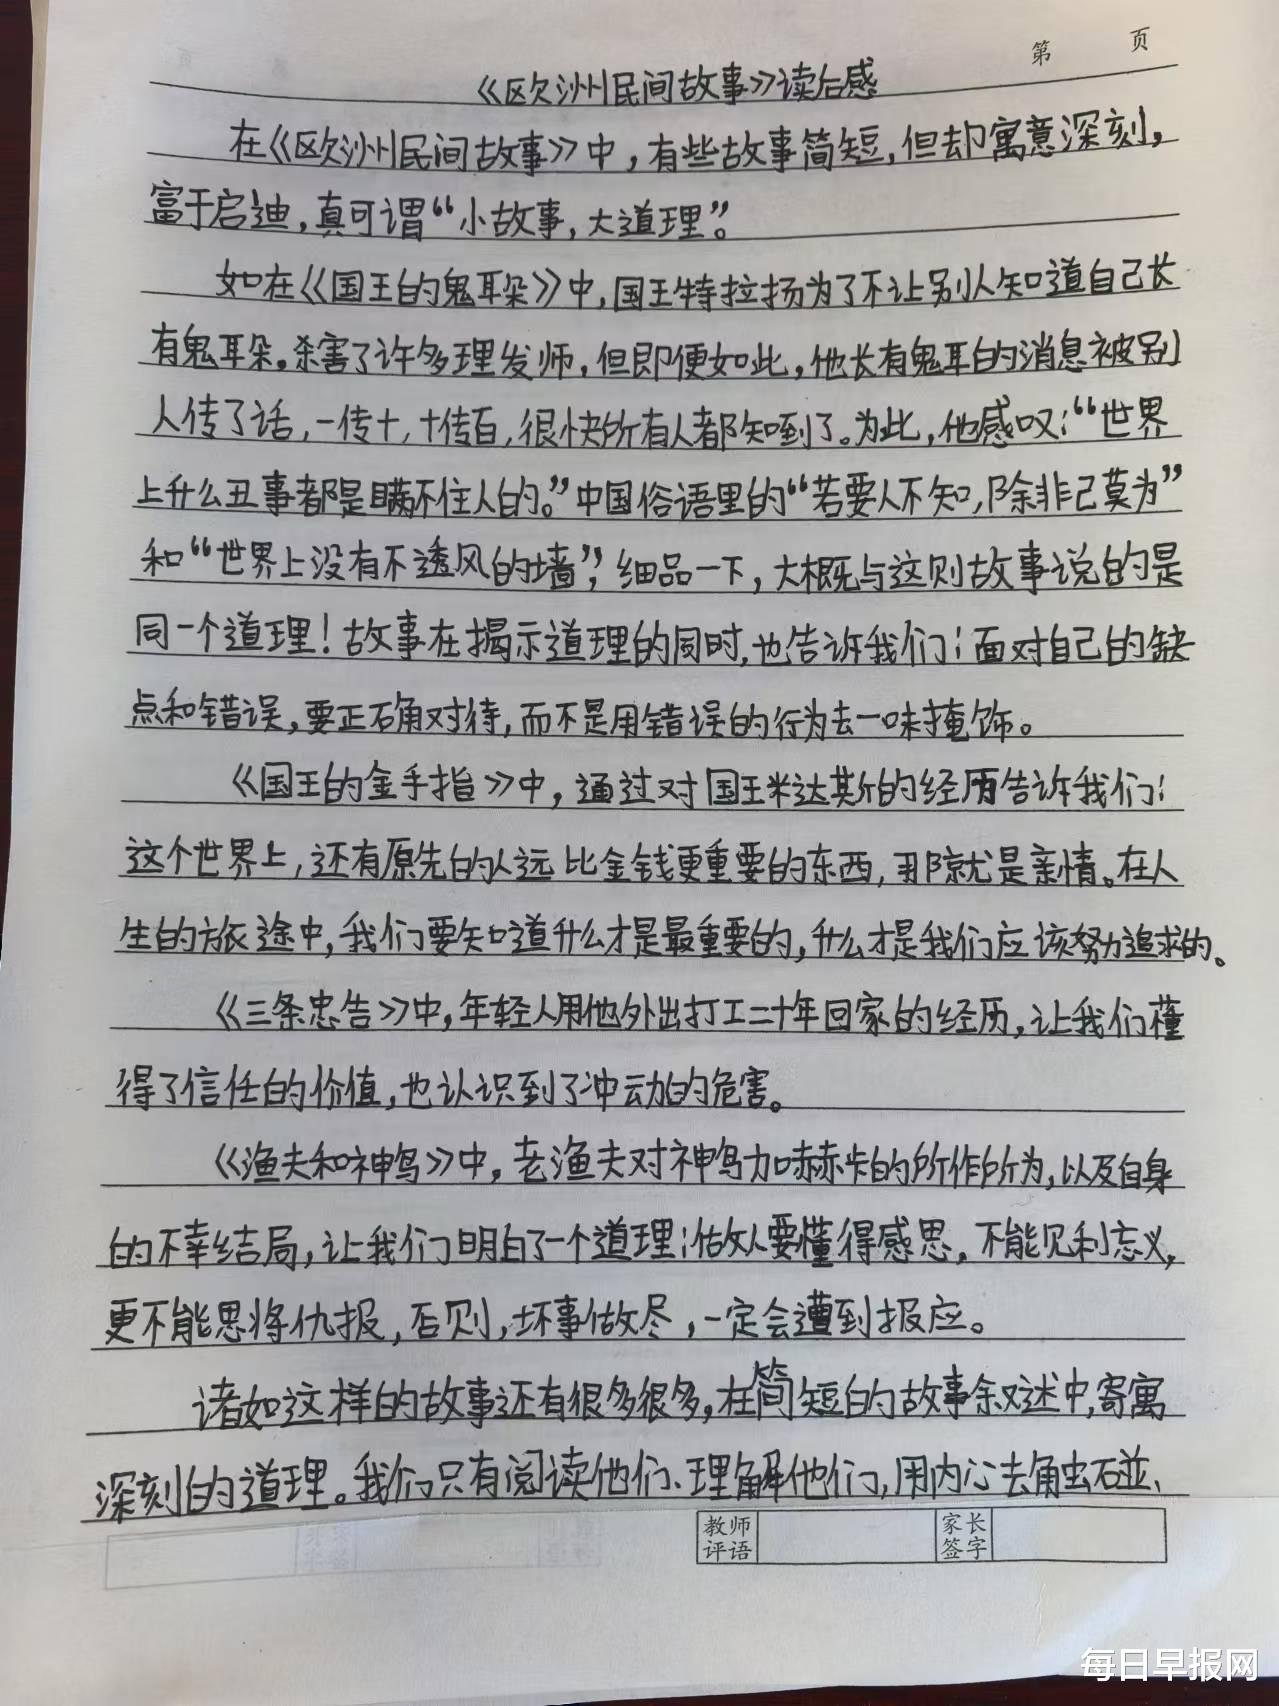 第 页
《欧洲民间故事》读后感
在《欧洲民间故事》中，有些故事简短，但却寓意深刻，
富于启迪，真可谓“小故事，大道理”。
如在《国王的鬼耳朵》中，国王特拉扬为了不让别人知道自己长
有鬼耳朵。杀害了许多理发师，但即便如此，他长有鬼耳的消息被别
人传了话，一传十，十传百，很快所有人都知到了。为此，他感叹：“世界
上什么丑事都是瞒不住人的。”中国俗语里的“若要人不知，除非己莫为”
和“世界上没有不透风的墙”，细品一下，大概与这则故事说的是
同一个道理！故事在揭示道理的同时，也告诉我们：面对自己的缺
点和错误，要正确对待，而不是用错误的行为去一味掩饰。
《国王的金手指》中，通过对国王米达斯的经历告诉我们：
这个世界上，还有原先的远比金钱更重要的东西，那就是亲情。在人
生的旅途中，我们要知道什么才是最重要的，什么才是我们应该努力追求的。
《三条忠告》中，年轻人用他外出打工二十年回家的经历，让我们懂
得了信任的价值，也认识到了冲动的危害。
《渔夫和神鸟》中，老渔夫对神鸟加赫卡的所作所为，以及自身
的不幸结局，让我们明白了一个道理：做人要懂得感恩，不能见利忘义，
更不能恩将仇报，否则，坏事做尽，一定会遭到报应。
诸如这样的故事还有很多很多，在简短的故事叙述中，寄寓
深刻的道理。我们只有阅读他们、理解他们，用内心去触碰、
教师评语
家长签字
每日早报网